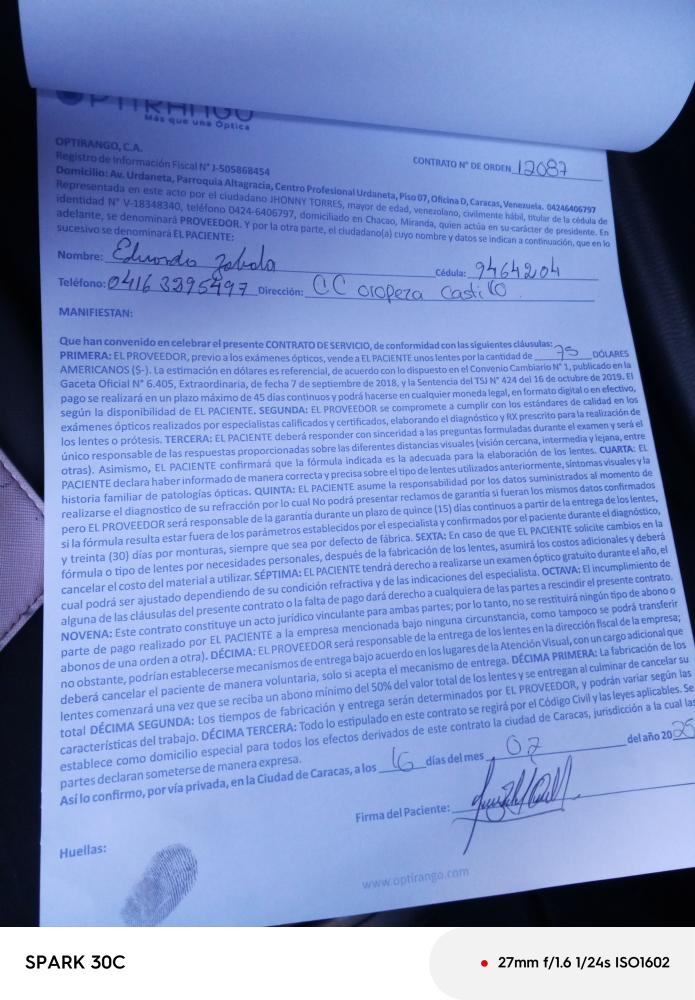 OPTIRANGO
Más que una Óptica
OPTIRANGO, C.A.
Registro de Información Fiscal N° J-505868454
CONTRATO N° DE ORDEN 12087
Domicilio: Av. Urdaneta, Parroquia Altagracia, Centro Profesional Urdaneta, Piso 07, Oficina D, Caracas, Venezuela. 04246406797
Representada en este acto por el ciudadano JHONNY TORRES, mayor de edad, venezolano, civilmente hábil, titular de la cédula de
identidad N° V-18348340, teléfono 0424-6406797, domiciliado en Chacao, Miranda, quien actúa en su carácter de presidente. En
adelante, se denominará PROVEEDOR. Y por la otra parte, el ciudadano(a) cuyo nombre y datos se indican a continuación, que en lo
sucesivo se denominará EL PACIENTE:
Nombre: Eduardo Zabala Cédula: 9464204
Teléfono: 0416 3395497 Dirección: CC oropeza Castillo.
MANIFIESTAN:
Que han convenido en celebrar el presente CONTRATO DE SERVICIO, de conformidad con las siguientes cláusulas:
PRIMERA: EL PROVEEDOR, previo a los exámenes ópticos, vende a EL PACIENTE unos lentes por la cantidad de 75 DÓLARES
AMERICANOS ($-). La estimación en dólares es referencial, de acuerdo con lo dispuesto en el Convenio Cambiario N° 1, publicado en la
Gaceta Oficial N° 6.405, Extraordinaria, de fecha 7 de septiembre de 2018, y la Sentencia del TSJ N° 424 del 16 de octubre de 2019. El
pago se realizará en un plazo máximo de 45 días continuos y podrá hacerse en cualquier moneda legal, en formato digital o en efectivo,
según la disponibilidad de EL PACIENTE. SEGUNDA: EL PROVEEDOR se compromete a cumplir con los estándares de calidad en los
exámenes ópticos realizados por especialistas calificados y certificados, elaborando el diagnóstico y RX prescrito para la realización de
los lentes o prótesis. TERCERA: EL PACIENTE deberá responder con sinceridad a las preguntas formuladas durante el examen y será el
único responsable de las respuestas proporcionadas sobre las diferentes distancias visuales (visión cercana, intermedia y lejana, entre
otras). Asimismo, EL PACIENTE confirmará que la fórmula indicada es la adecuada para la elaboración de los lentes. CUARTA: EL
PACIENTE declara haber informado de manera correcta y precisa sobre el tipo de lentes utilizados anteriormente, síntomas visuales y la
historia familiar de patologías ópticas. QUINTA: EL PACIENTE asume la responsabilidad por los datos suministrados al momento de
realizarse el diagnostico de su refracción por lo cual No podrá presentar reclamos de garantía si fueran los mismos datos confirmados
pero EL PROVEEDOR será responsable de la garantía durante un plazo de quince (15) días continuos a partir de la entrega de los lentes,
si la fórmula resulta estar fuera de los parámetros establecidos por el especialista y confirmados por el paciente durante el diagnóstico,
y treinta (30) días por monturas, siempre que sea por defecto de fábrica. SEXTA: En caso de que EL PACIENTE solicite cambios en la
fórmula o tipo de lentes por necesidades personales, después de la fabricación de los lentes, asumirá los costos adicionales y deberá
cancelar el costo del material a utilizar. SÉPTIMA: EL PACIENTE tendrá derecho a realizarse un examen óptico gratuito durante el año, el
cual podrá ser ajustado dependiendo de su condición refractiva y de las indicaciones del especialista. OCTAVA: El incumplimiento de
alguna de las cláusulas del presente contrato o la falta de pago dará derecho a cualquiera de las partes a rescindir el presente contrato.
NOVENA: Este contrato constituye un acto jurídico vinculante para ambas partes; por lo tanto, no se restituirá ningún tipo de abono o
parte de pago realizado por EL PACIENTE a la empresa mencionada bajo ninguna circunstancia, como tampoco se podrá transferir
abonos de una orden a otra). DÉCIMA: EL PROVEEDOR será responsable de la entrega de los lentes en la dirección fiscal de la empresa;
no obstante, podrían establecerse mecanismos de entrega bajo acuerdo en los lugares de la Atención Visual, con un cargo adicional que
deberá cancelar el paciente de manera voluntaria, solo si acepta el mecanismo de entrega. DÉCIMA PRIMERA: La fabricación de los
lentes comenzará una vez que se reciba un abono mínimo del 50% del valor total de los lentes y se entregan al culminar de cancelar su
total DÉCIMA SEGUNDA: Los tiempos de fabricación y entrega serán determinados por EL PROVEEDOR, y podrán variar según las
características del trabajo. DÉCIMA TERCERA: Todo lo estipulado en este contrato se regirá por el Código Civil y las leyes aplicables. Se
establece como domicilio especial para todos los efectos derivados de este contrato la ciudad de Caracas, jurisdicción a la cual las
partes declaran someterse de manera expresa.
Así lo confirmo, por vía privada, en la Ciudad de Caracas, a los 16 días del mes 07 del año 2025
Firma del Paciente:
Huellas:
www.optirango.com
SPARK 30C
27mm f/1.6 1/24s ISO1602